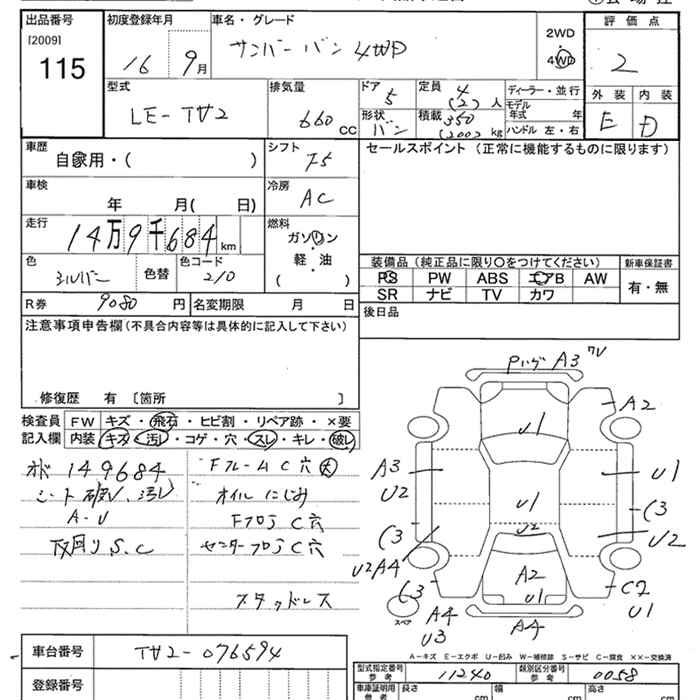 出品番号 初度登録年月 車名・グレード 評価点
[2009] 115
16 9月
サンバーバン 4WD
2WD
4WD
2
型式 排気量 ドア 定員 ディーラー・並行
LE-TV2 660 CC 5 4 (2) 人
モデル年式 年
形状 バン 積載 350 (200) kg ハンドル 左・右
外装 内装
E D
車歴 シフト セールスポイント (正常に機能するものに限ります)
自家用・( ) F5
車検 冷房
年 月( 日) AC
走行 燃料
14万9千684 km ガソリン
・
軽・油
( )
色 色替 色コード
シルバー 210
装備品 (純正品に限り○をつけてください) 新車保証書
PS PW ABS エアB AW 有・無
SR ナビ TV カワ
R券 9080 円 名変期限 月 日 後日品
注意事項申告欄 (不具合内容等は具体的に記入して下さい)
修復歴 有 〔箇所 〕
検査員 FW キズ・飛石・ヒビ割・リペア跡・×要
記入欄 内装 キズ・汚レ・コゲ・穴・スレ・キレ・破レ
オド 149684 Fフレーム C穴 大
シート破レ、汚レ オイルにじみ
A-U Fフロア C穴
下回り S.C センターフロア C穴
スタッドレス
Pハゲ A3 ワレ
A2
U1
A3
U2
U1
U1
C3
C3
U2
U2
U2A4
A2
U1
C3
C2
U1
スペア
A4
U3
A4
A-キズ E-エクボ U-凹み W-補修跡 S-サビ C-腐食 XX-交換済
車台番号 TV2-076594
登録番号
型式指定番号 参考 11240 類別区分番号 参考 0058
車庫証明用 参考 長さ cm 幅 cm 高さ cm